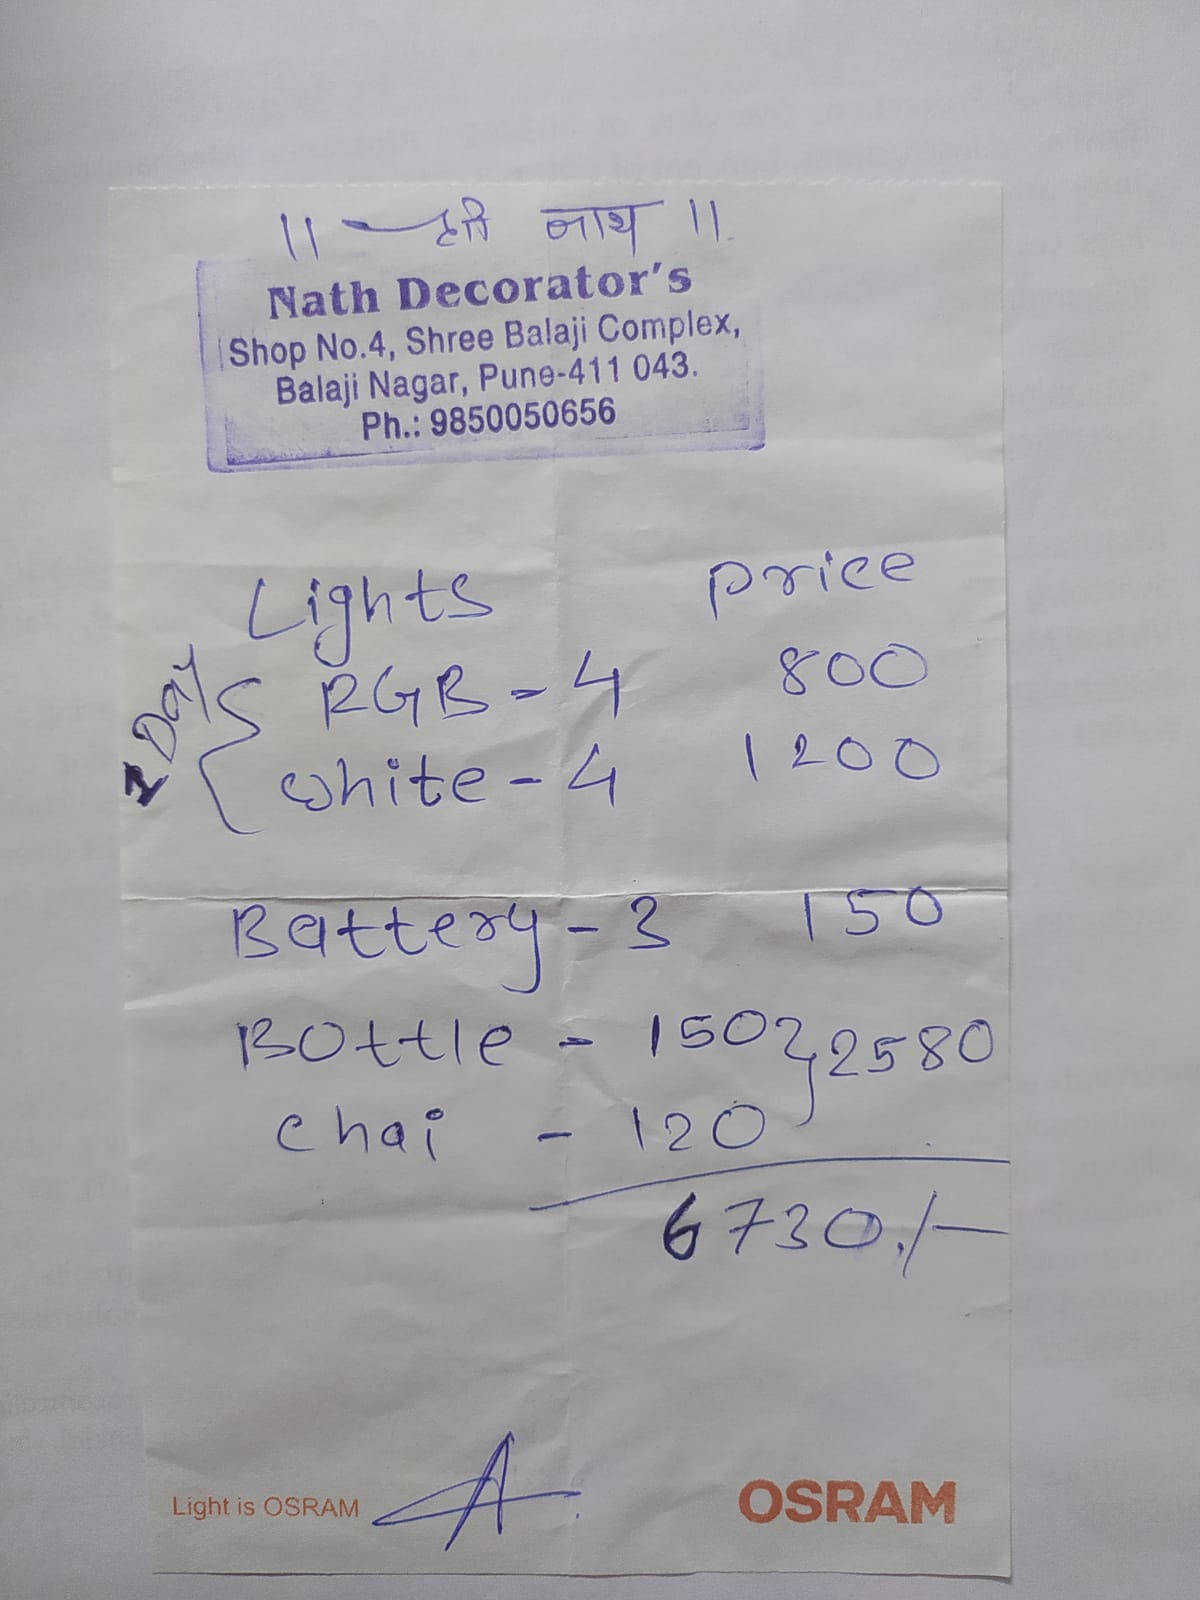 || श्री नाथ ||
Nath Decorator's
Shop No.4, Shree Balaji Complex,
Balaji Nagar, Pune-411 043.
Ph.: 9850050656
Lights price
RGB - 4 800
Day
White - 4 1200
Battery - 3 150
Bottle - 150 } 2580
chai - 120
6730./-
Light is OSRAM OSRAM